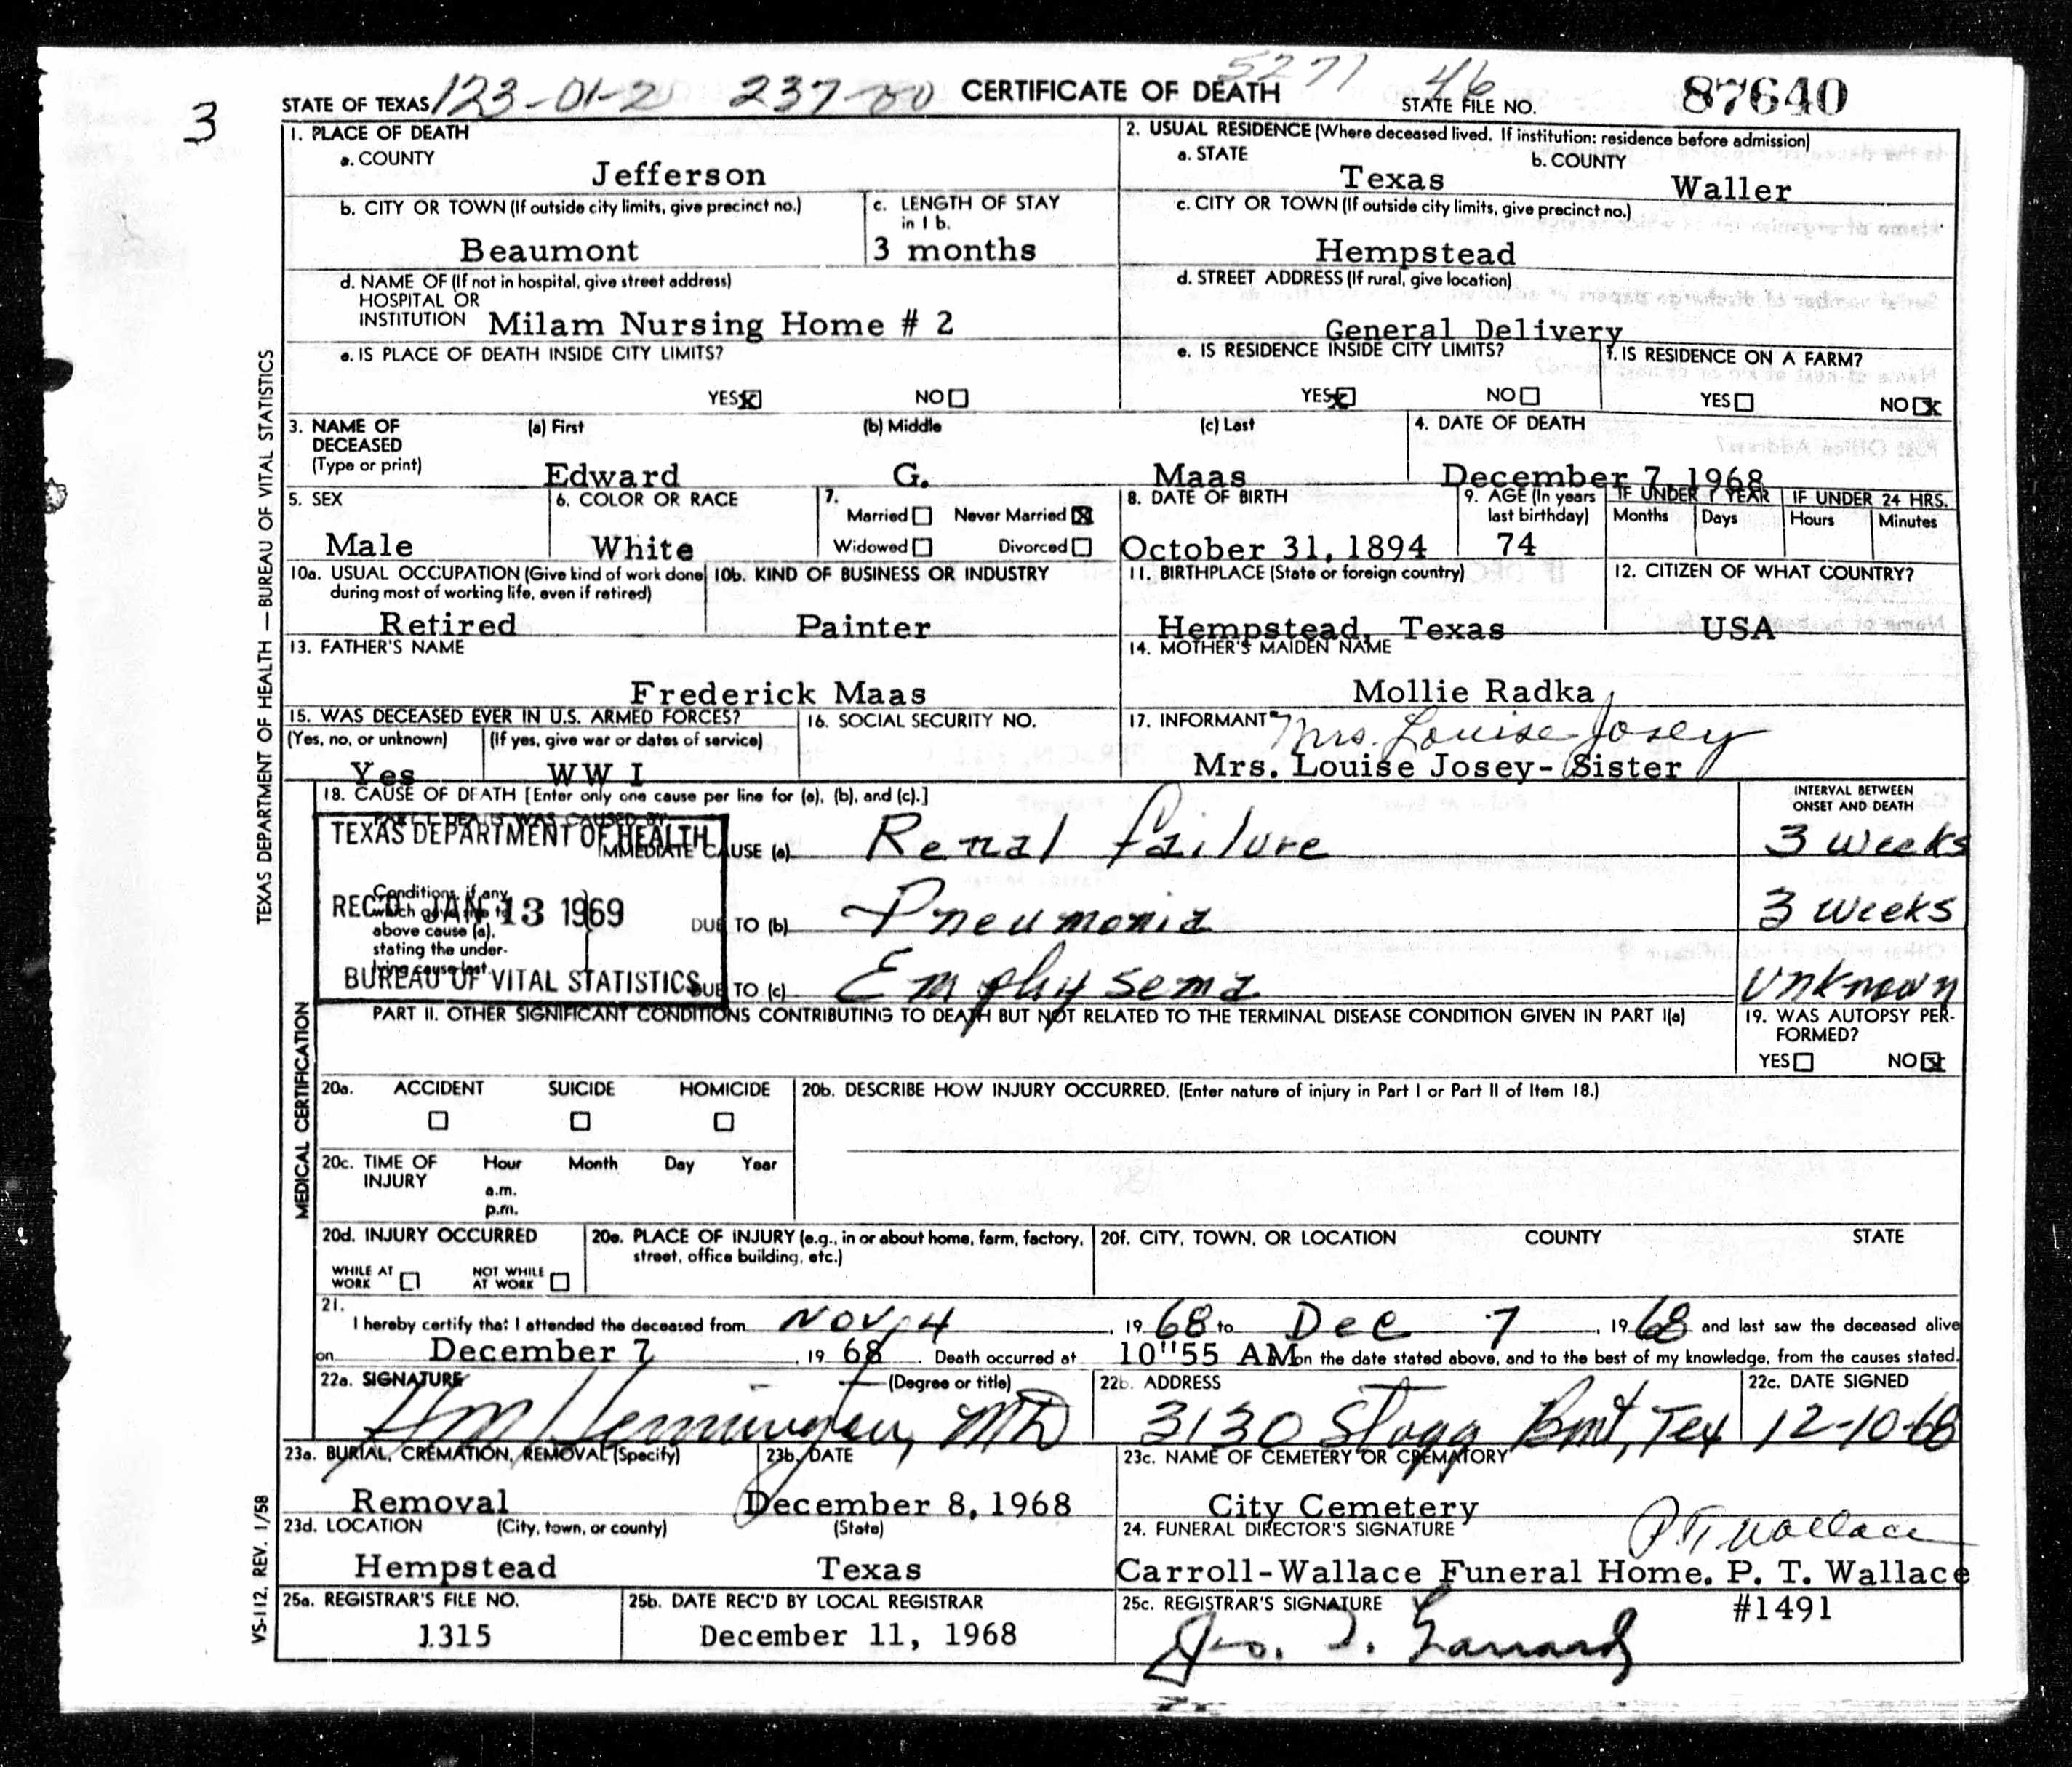 3
STATE OF TEXAS 123-01-2 237-00 CERTIFICATE OF DEATH 5271 46 STATE FILE NO. 87640
1. PLACE OF DEATH
a. COUNTY
Jefferson
2. USUAL RESIDENCE (Where deceased lived. If institution: residence before admission)
a. STATE b. COUNTY
Texas Waller
b. CITY OR TOWN (If outside city limits, give precinct no.)
Beaumont
c. LENGTH OF STAY
in 1 b.
3 months
c. CITY OR TOWN (If outside city limits, give precinct no.)
Hempstead
d. NAME OF (If not in hospital, give street address)
HOSPITAL OR
INSTITUTION Milam Nursing Home # 2
d. STREET ADDRESS (If rural, give location)
General Delivery
e. IS PLACE OF DEATH INSIDE CITY LIMITS?
YES ☒ NO ☐
e. IS RESIDENCE INSIDE CITY LIMITS?
YES ☒ NO ☐
f. IS RESIDENCE ON A FARM?
YES ☐ NO ☒
3. NAME OF
DECEASED
(Type or print)
(a) First (b) Middle (c) Last
Edward G. Maas
4. DATE OF DEATH
December 7, 1968
5. SEX
Male
6. COLOR OR RACE
White
7.
Married ☐ Never Married ☒
Widowed ☐ Divorced ☐
8. DATE OF BIRTH
October 31, 1894
9. AGE (In years
last birthday)
74
IF UNDER 1 YEAR
Months Days
IF UNDER 24 HRS.
Hours Minutes
10a. USUAL OCCUPATION (Give kind of work done
during most of working life, even if retired)
Retired
10b. KIND OF BUSINESS OR INDUSTRY
Painter
11. BIRTHPLACE (State or foreign country)
Hempstead, Texas
12. CITIZEN OF WHAT COUNTRY?
USA
13. FATHER'S NAME
Frederick Maas
14. MOTHER'S MAIDEN NAME
Mollie Radka
15. WAS DECEASED EVER IN U.S. ARMED FORCES?
(Yes, no, or unknown) (If yes, give war or dates of service)
Yes WW I
16. SOCIAL SECURITY NO.
17. INFORMANT Mrs. Louise Josey
Mrs. Louise Josey- Sister
18. CAUSE OF DEATH [Enter only one cause per line for (a), (b), and (c).]
INTERVAL BETWEEN
ONSET AND DEATH
PART I. DEATH WAS CAUSED BY:
IMMEDIATE CAUSE (a) Renal failure 3 weeks
Conditions, if any,
which gave rise to
above cause (a),
stating the under-
lying cause last.
DUE TO (b) Pneumonia 3 weeks
DUE TO (c) Emphysema Unknown
TEXAS DEPARTMENT OF HEALTH
REC'D JAN 13 1969
BUREAU OF VITAL STATISTICS
PART II. OTHER SIGNIFICANT CONDITIONS CONTRIBUTING TO DEATH BUT NOT RELATED TO THE TERMINAL DISEASE CONDITION GIVEN IN PART I(a)
19. WAS AUTOPSY PER-
FORMED?
YES ☐ NO ☒
20a. ACCIDENT SUICIDE HOMICIDE
☐ ☐ ☐
20b. DESCRIBE HOW INJURY OCCURRED. (Enter nature of injury in Part I or Part II of Item 18.)
20c. TIME OF
INJURY
Hour Month Day Year
a.m.
p.m.
20d. INJURY OCCURRED
WHILE AT
WORK ☐
NOT WHILE
AT WORK ☐
20e. PLACE OF INJURY (e.g., in or about home, farm, factory,
street, office building, etc.)
20f. CITY, TOWN, OR LOCATION COUNTY STATE
21.
I hereby certify that I attended the deceased from Nov, 4, 19 68 to Dec 7, 19 68 and last saw the deceased alive
on December 7, 19 68. Death occurred at 10"55 AM on the date stated above, and to the best of my knowledge, from the causes stated.
22a. SIGNATURE (Degree or title)
MD
22b. ADDRESS
3130 Stagg Bmt, Tex
22c. DATE SIGNED
12-10-68
23a. BURIAL, CREMATION, REMOVAL (Specify)
Removal
23b. DATE
December 8, 1968
23c. NAME OF CEMETERY OR CREMATORY
City Cemetery
23d. LOCATION (City, town, or county) (State)
Hempstead Texas
24. FUNERAL DIRECTOR'S SIGNATURE P T Wallace
Carroll-Wallace Funeral Home. P. T. Wallace
#1491
25a. REGISTRAR'S FILE NO.
1315
25b. DATE REC'D BY LOCAL REGISTRAR
December 11, 1968
25c. REGISTRAR'S SIGNATURE
TEXAS DEPARTMENT OF HEALTH — BUREAU OF VITAL STATISTICS
MEDICAL CERTIFICATION
VS-112. REV. 1/58